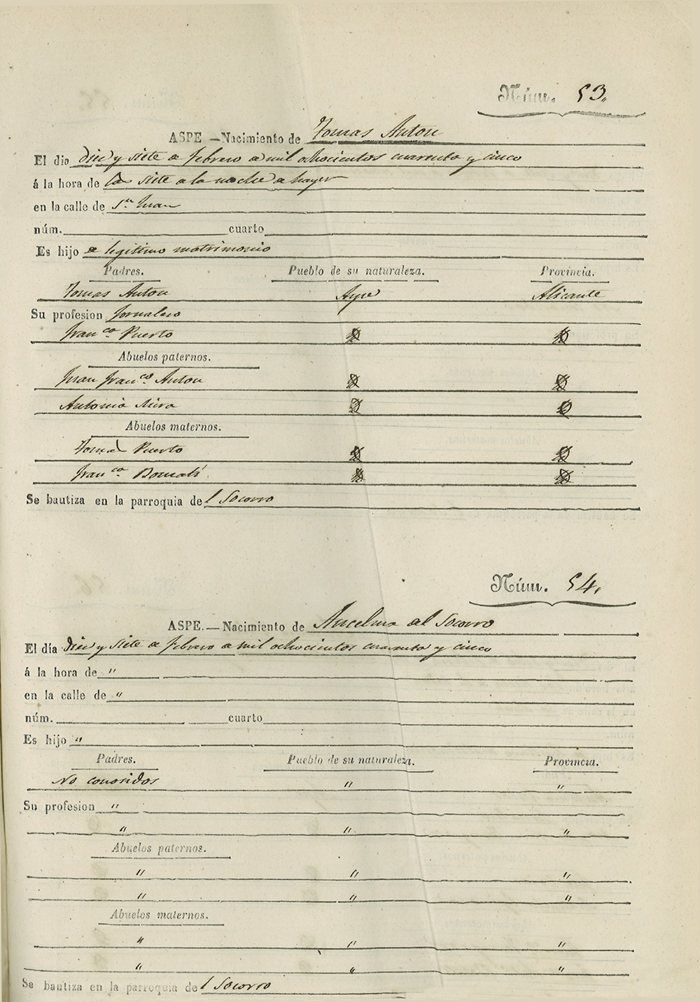 Núm. 53.
ASPE.—Nacimiento de Tomas Anton
El dia diez y siete de febrero de mil ochocientos cuarenta y cinco
á la hora de las siete de la noche de hayer
en la calle de Sn Juan
núm. cuarto
Es hijo de legitimo matrimonio
Padres. Pueblo de su naturaleza. Provincia.
Tomas Anton Aspe Alicante
Su profesion Jornalero
Franca Puerto
Abuelos paternos.
Juan Franco Anton
Antonia Mira
Abuelos maternos.
Tomás Puerto
Franca
Se bautiza en la parroquia del Socorro
Núm. 54.
ASPE.—Nacimiento de Anselma del Socorro
El día diez y siete de febrero de mil ochocientos cuarenta y cinco
á la hora de "
en la calle de "
núm. cuarto
Es hijo "
Padres. Pueblo de su naturaleza. Provincia.
No conocidos " "
Su profesion "
" " "
Abuelos paternos.
" " "
" " "
Abuelos maternos.
" " "
" " "
Se bautiza en la parroquia del Socorro